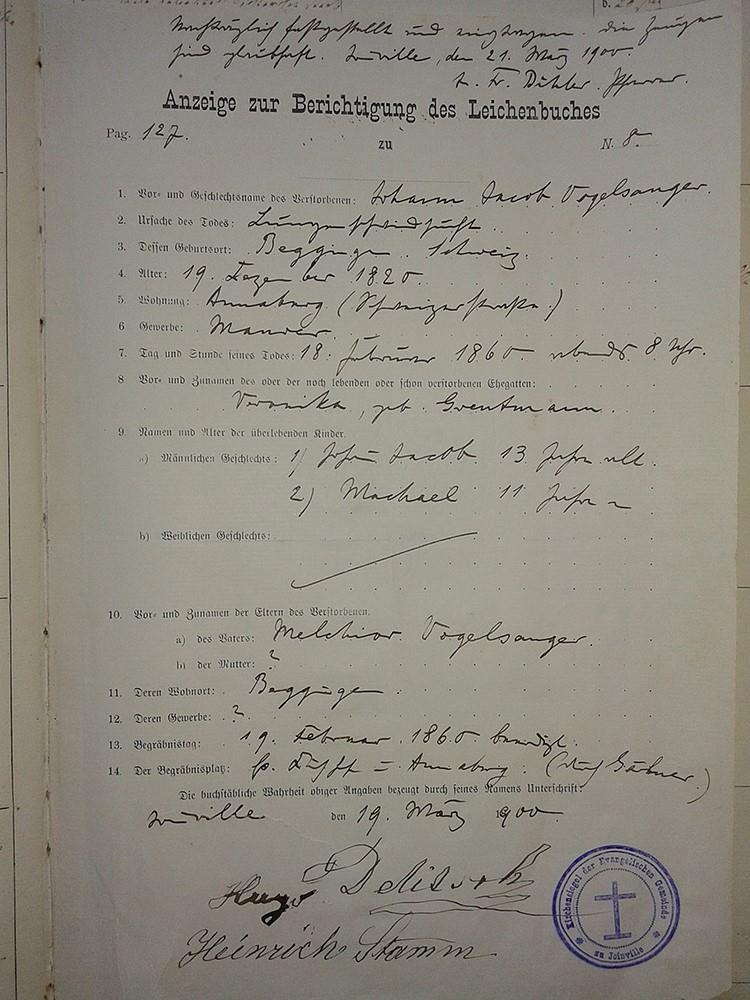 Nachträglich festgestellt und eingetragen. die Zeugen
sind glaubhaft. Joinville, den 21. März 1900.
Pfarrer.
Anzeige zur Berichtigung des Leichenbuches
Pag. 127. zu N. 8.
1. Vor- und Geschlechtsname des Verstorbenen: Johann Jacob Vogelsanger.
2. Ursache des Todes: Lungenschwindsucht
3. Dessen Geburtsort: Beggingen. Schweiz.
4. Alter: 19. Dezember 1820.
5. Wohnung: Annaburg (Schweizerstraße.)
6 Gewerbe: Maurer.
7. Tag und Stunde seines Todes: 18. Februar 1860 abends 8 Uhr.
8 Vor- und Zunamen des oder der noch lebenden oder schon verstorbenen Ehegatten:
Veronika, geb. Greutmann.
9. Namen und Alter der überlebenden Kinder.
a) Männlichen Geschlechts: 1) Joh. Jacob 13 Jahre alt.
2) Michael 11 Jahre "
b) Weiblichen Geschlechts:
10. Vor- und Zunamen der Eltern des Verstorbenen.
a) des Vaters: Melchior Vogelsanger.
b) der Mutter: ?
11. Deren Wohnort: Beggingen
12. Deren Gewerbe: ?
13. Begräbnistag: 19. Februar 1860 beerdigt.
14. Der Begräbnisplatz: Annaburg.
Die buchstäbliche Wahrheit obiger Angaben bezeugt durch seines Namens Unterschrift:
Joinville den 19. März 1900.
Hugo Delitsch
Heinrich Stamm
Kirchensiegel der Evangelischen Gemeinde
zu Joinville